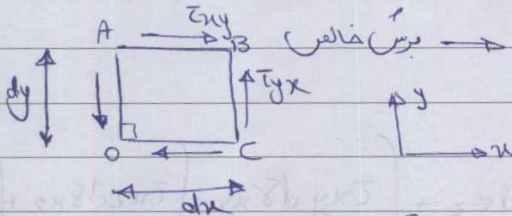 A τxy B برش خالص
dy τyx y
O C x
dx